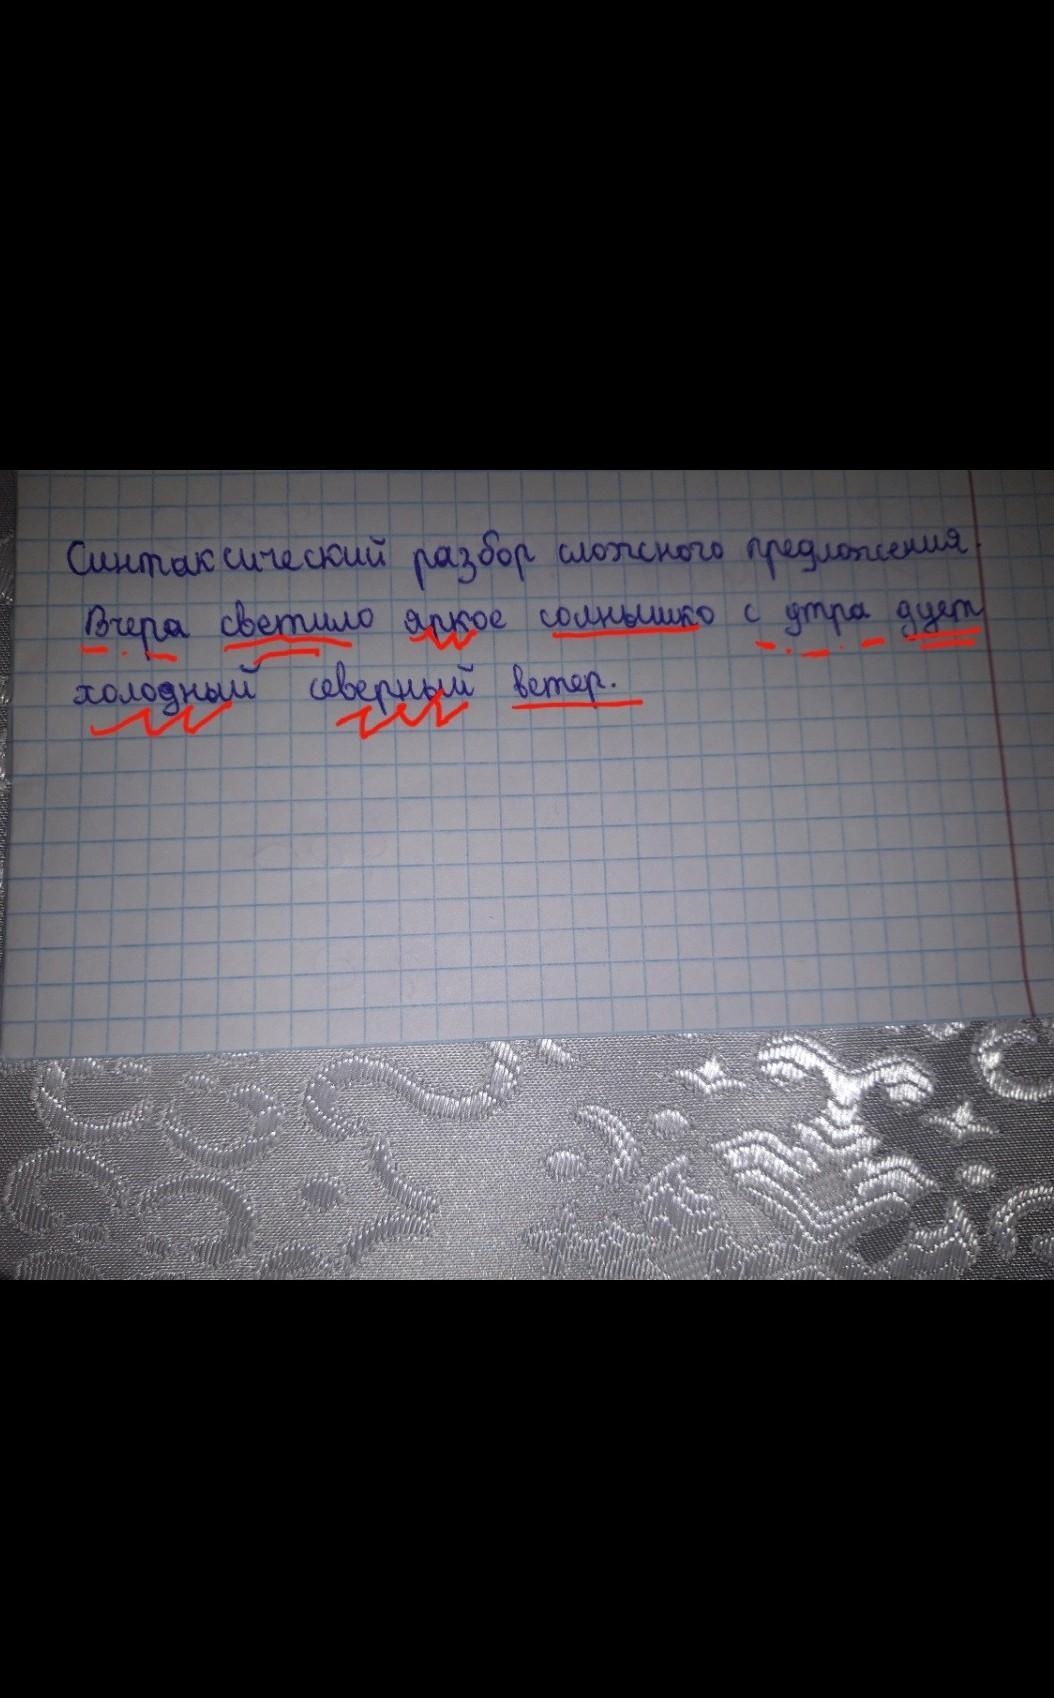 Синтаксический разбор сложного предложения.
Вчера светило яркое солнышко с утра дует
холодный северный ветер.